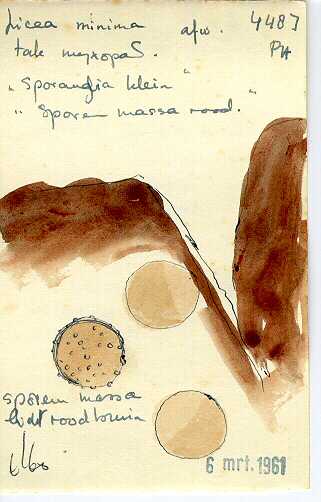 Licea minima afw. 4487
tak
"Sporangia klein"
"Sporen massa rood."
sporen massa
licht roodbruin
6 mrt. 1961